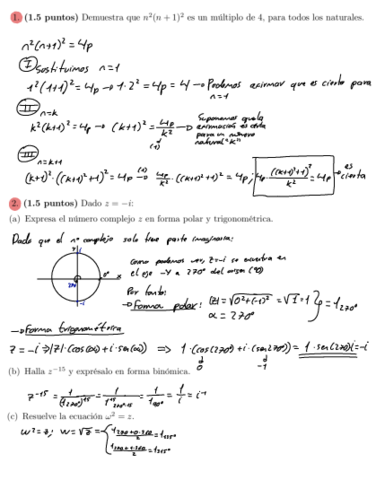 1. (1.5 puntos) Demuestra que n²(n + 1)² es un múltiplo de 4, para todos los naturales.
n²(n+1)² = 4p
I Sustituimos n=1
1²(1+1)² = 4p → 1·2² = 4p = 4 → Podemos afirmar que es cierto para n=1
II n=k
k²(k+1)² = 4p → (k+1)² = 4p/k² → Suponemos que la afirmación es cierta para un número natural "k"
III n=k+1
(k+1)²·((k+1)+1)² = 4p → 4p/k² · ((k+1)+1)² = 4p; 4p · ((k+1)+1)²/k² = 4p → es cierta
2. (1.5 puntos) Dado z = −i:
(a) Expresa el número complejo z en forma polar y trigonométrica.
Dado que el nº complejo solo tiene parte imaginaria:
Como podemos ver, z=-i se encuentra en
el eje -Y a 270° del origen
Por tanto:
→ Forma polar: |z| = √0²+(-1)² = √1 = 1
α = 270°
= 1₂₇₀°
→ Forma trigonométrica
z = -i → |z|·(cos(α) + i·sen(α)) ⇒ 1·(cos(270°) + i·(sen(270°)) = 1·sen(270)i = -i
0 -1
(b) Halla z⁻¹⁵ y exprésalo en forma binómica.
(c) Resuelve la ecuación ω² = z.